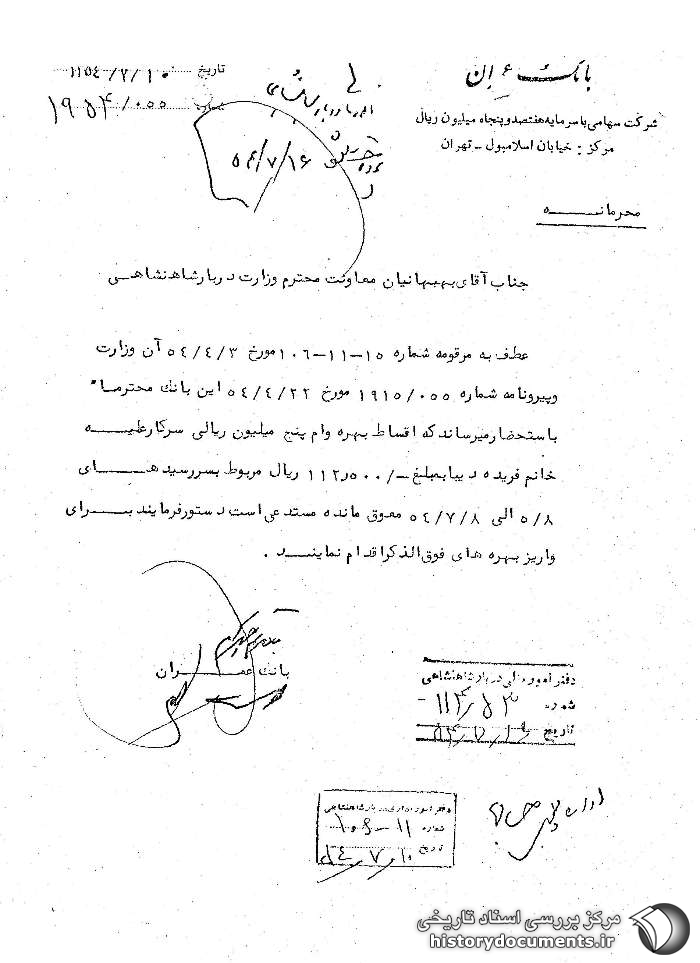 بانک عمران
شرکت سهامی با سرمایه هفتصد و پنجاه میلیون ریال
مرکز : خیابان اسلامبول – تهران
تاریخ ١٣٥٤/٧/١٠
١٩٥۴/٠٥٥
۵۴/٧/١۶
محرمانه
جناب آقای بهبهانیان معاونت محترم وزارت دربار شاهنشاهی
عطف به مرقومه شماره ١٥–١١–١٠٦ مورخ ٥٤/٤/٣ آن وزارت
و پیرو نامه شماره ١٩١٥/٠٥٥ مورخ ٥٤/٤/٢٢ این بانک محترما"
باستحضار میرساند که اقساط بهره وام پنج میلیون ریالی سرکار علیه
خانم فریده دیبا بمبلغ –/١١٢ر٥٠٠ ریال مربوط بسررسید های
٥/٨ الی ٥٤/٧/٨ معوق مانده مستدعی است دستور فرمایند برای
واریز بهره های فوق الذکر اقدام نمایند .
بانک عمران
دفتر امور مالی دربار شاهنشاهی
شماره
تاریخ
دفتر امور اداری دربار شاهنشاهی
شماره ١١–١٠٦
تاریخ ٥٤/٧/١٠
مرکز بررسی اسناد تاریخی
historydocuments.ir